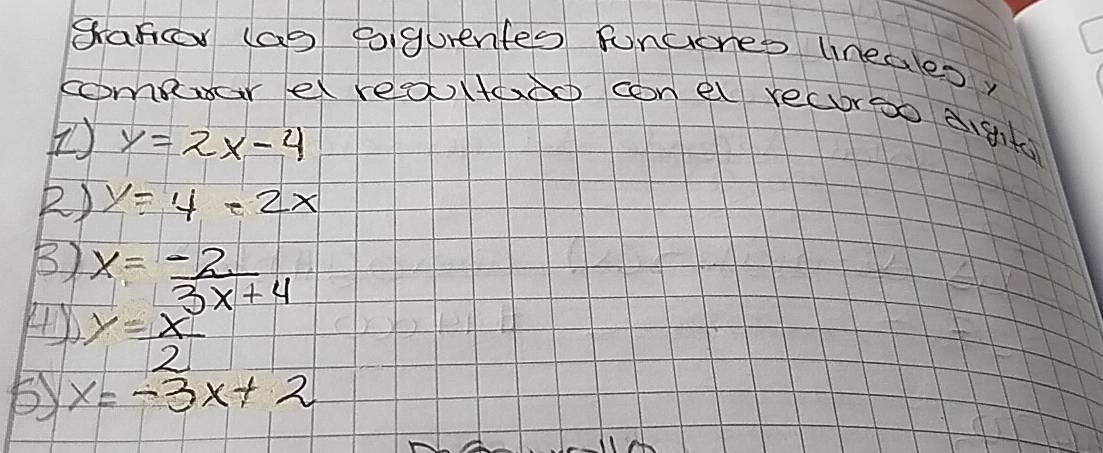 graficar las siguientes funciones lineales y
comparar el resultado con el recurso digital
1) y = 2x - 4
2) y = 4 - 2x
3) x = -2
3x + 4
4) y = x
2
5) x = -3x + 2